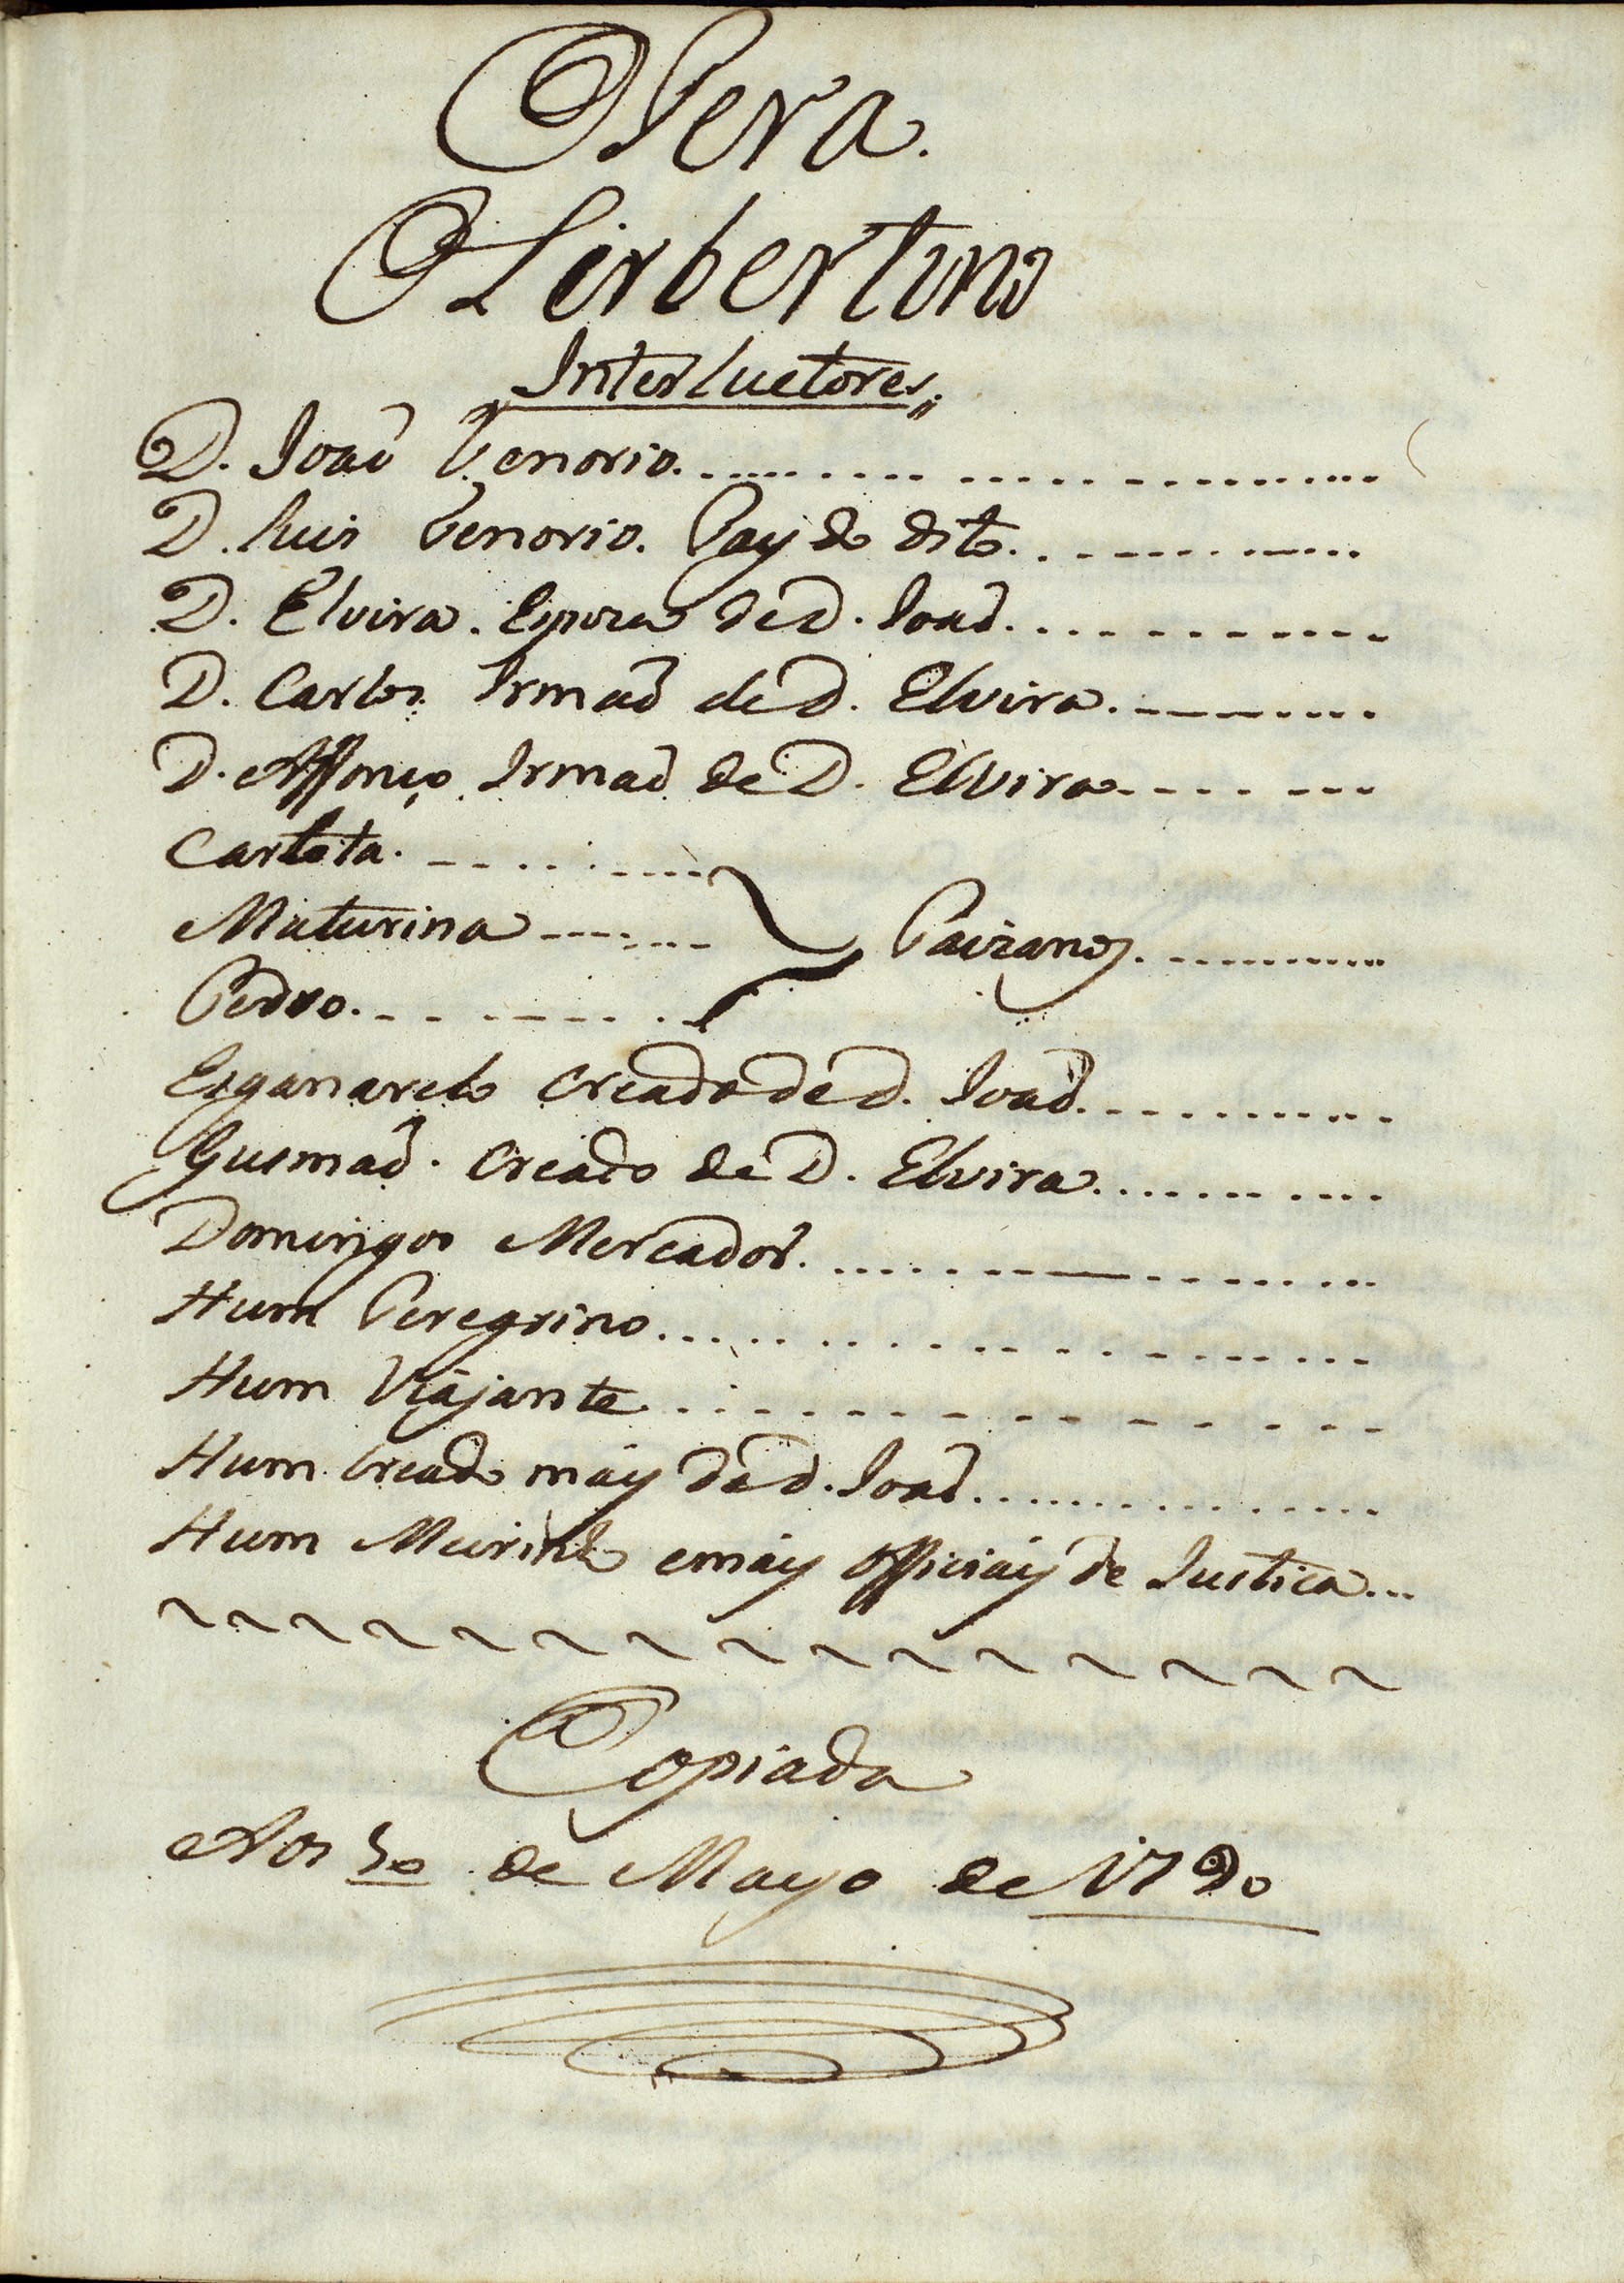 Opera.
O Lirbertino
Interluctores,,
D. Joaõ Tenorio.
D. Luis Tenorio. Pay do dito.
D. Elvira. Espoza de D. Joaõ.
D. Carlos Irmaõ de D. Elvira.
D. Affonço Irmaõ de D. Elvira
Carlota.
Maturina
Paizanos.
Pedro.
Esganarelo Creado de D. Joaõ.
Gusmaõ. Creado de D. Elvira.
Domingos Mercador.
Hum Peregrino.
Hum Viajante.
Hum Creado mais de D. Joaõ.
Hum Meirinho emais officiais de Justica
Copiada
Aos 30 de Mayo de 1790